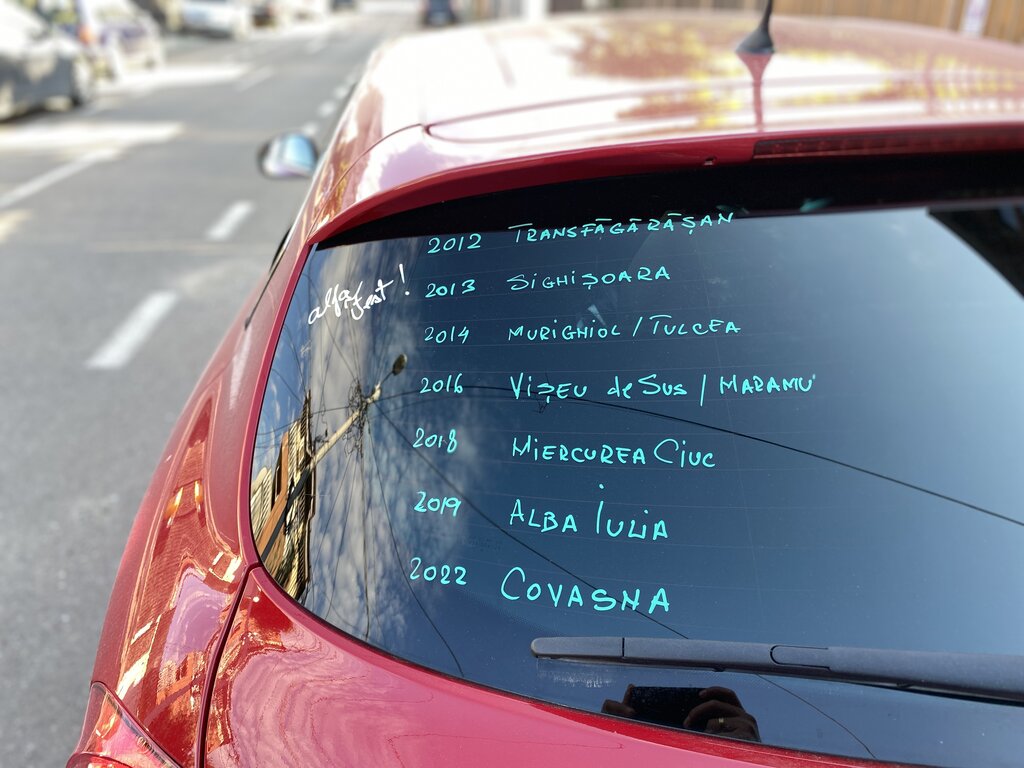 alfa fest!
2012 TRANSFĂGĂRĂȘAN
2013 SIGHIȘOARA
2014 MURIGHIOL / TULCEA
2016 VIȘEU de SUS / MARAMU'
2018 MIERCUREA CIUC
2019 ALBA IULIA
2022 COVASNA